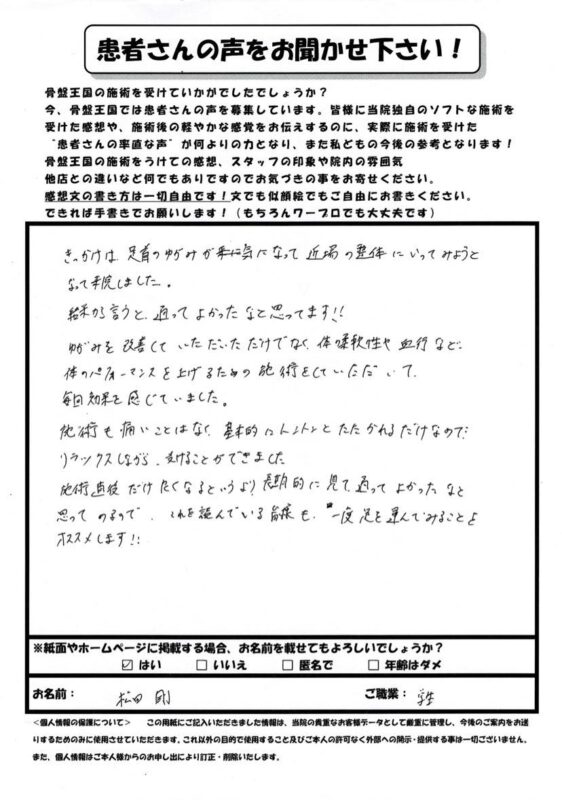 患者さんの声をお聞かせ下さい！
骨盤王国の施術を受けていかがでしたでしょうか？
今、骨盤王国では患者さんの声を募集しています。皆様に当院独自のソフトな施術を
受けた感想や、施術後の軽やかな感覚をお伝えするのに、実際に施術を受けた
“患者さんの率直な声”が何よりの力となり、また私どもの今後の参考となります！
骨盤王国の施術をうけての感想、スタッフの印象や院内の雰囲気
他店との違いなど何でもありですのでお気づきの事をお寄せください。
感想文の書き方は一切自由です！文でも似顔絵でもご自由にお書きください。
できれば手書きでお願いします！（もちろんワープロでも大丈夫です）
きっかけは 足首のゆがみが 気になって 近場の整体にいってみようと
なって来院しました。
結果から言うと、通ってよかったなと思ってます!!
ゆがみを改善していただいただけでなく、体の柔軟性や血行など、
体のパフォーマンスを上げるための施術をしていただいて、
毎回効果を感じていました。
施術も痛いことはなく、基本的にトントンとたたかれるだけなので
リラックスしながら、受けることができました
施術直後だけ よくなるというより長期的に見て通ってよかったなと
思って いるので、これを読んでいる皆様も、一度足を運んでみることを
オススメします!!
※紙面やホームページに掲載する場合、お名前を載せてもよろしいでしょうか？
☑ はい □ いいえ □ 匿名で □ 年齢はダメ
お名前： 松田 剛 ご職業： 学生
＜個人情報の保護について＞ この用紙にご記入いただきました情報は、当院の貴重なお客様データとして厳重に管理し、今後のご案内をお送
りするためのみに使用させていただきます。これ以外の目的で使用すること及びご本人の許可なく外部への開示・提供する事は一切ございません。
また、個人情報はご本人様からのお申し出により訂正・削除いたします。